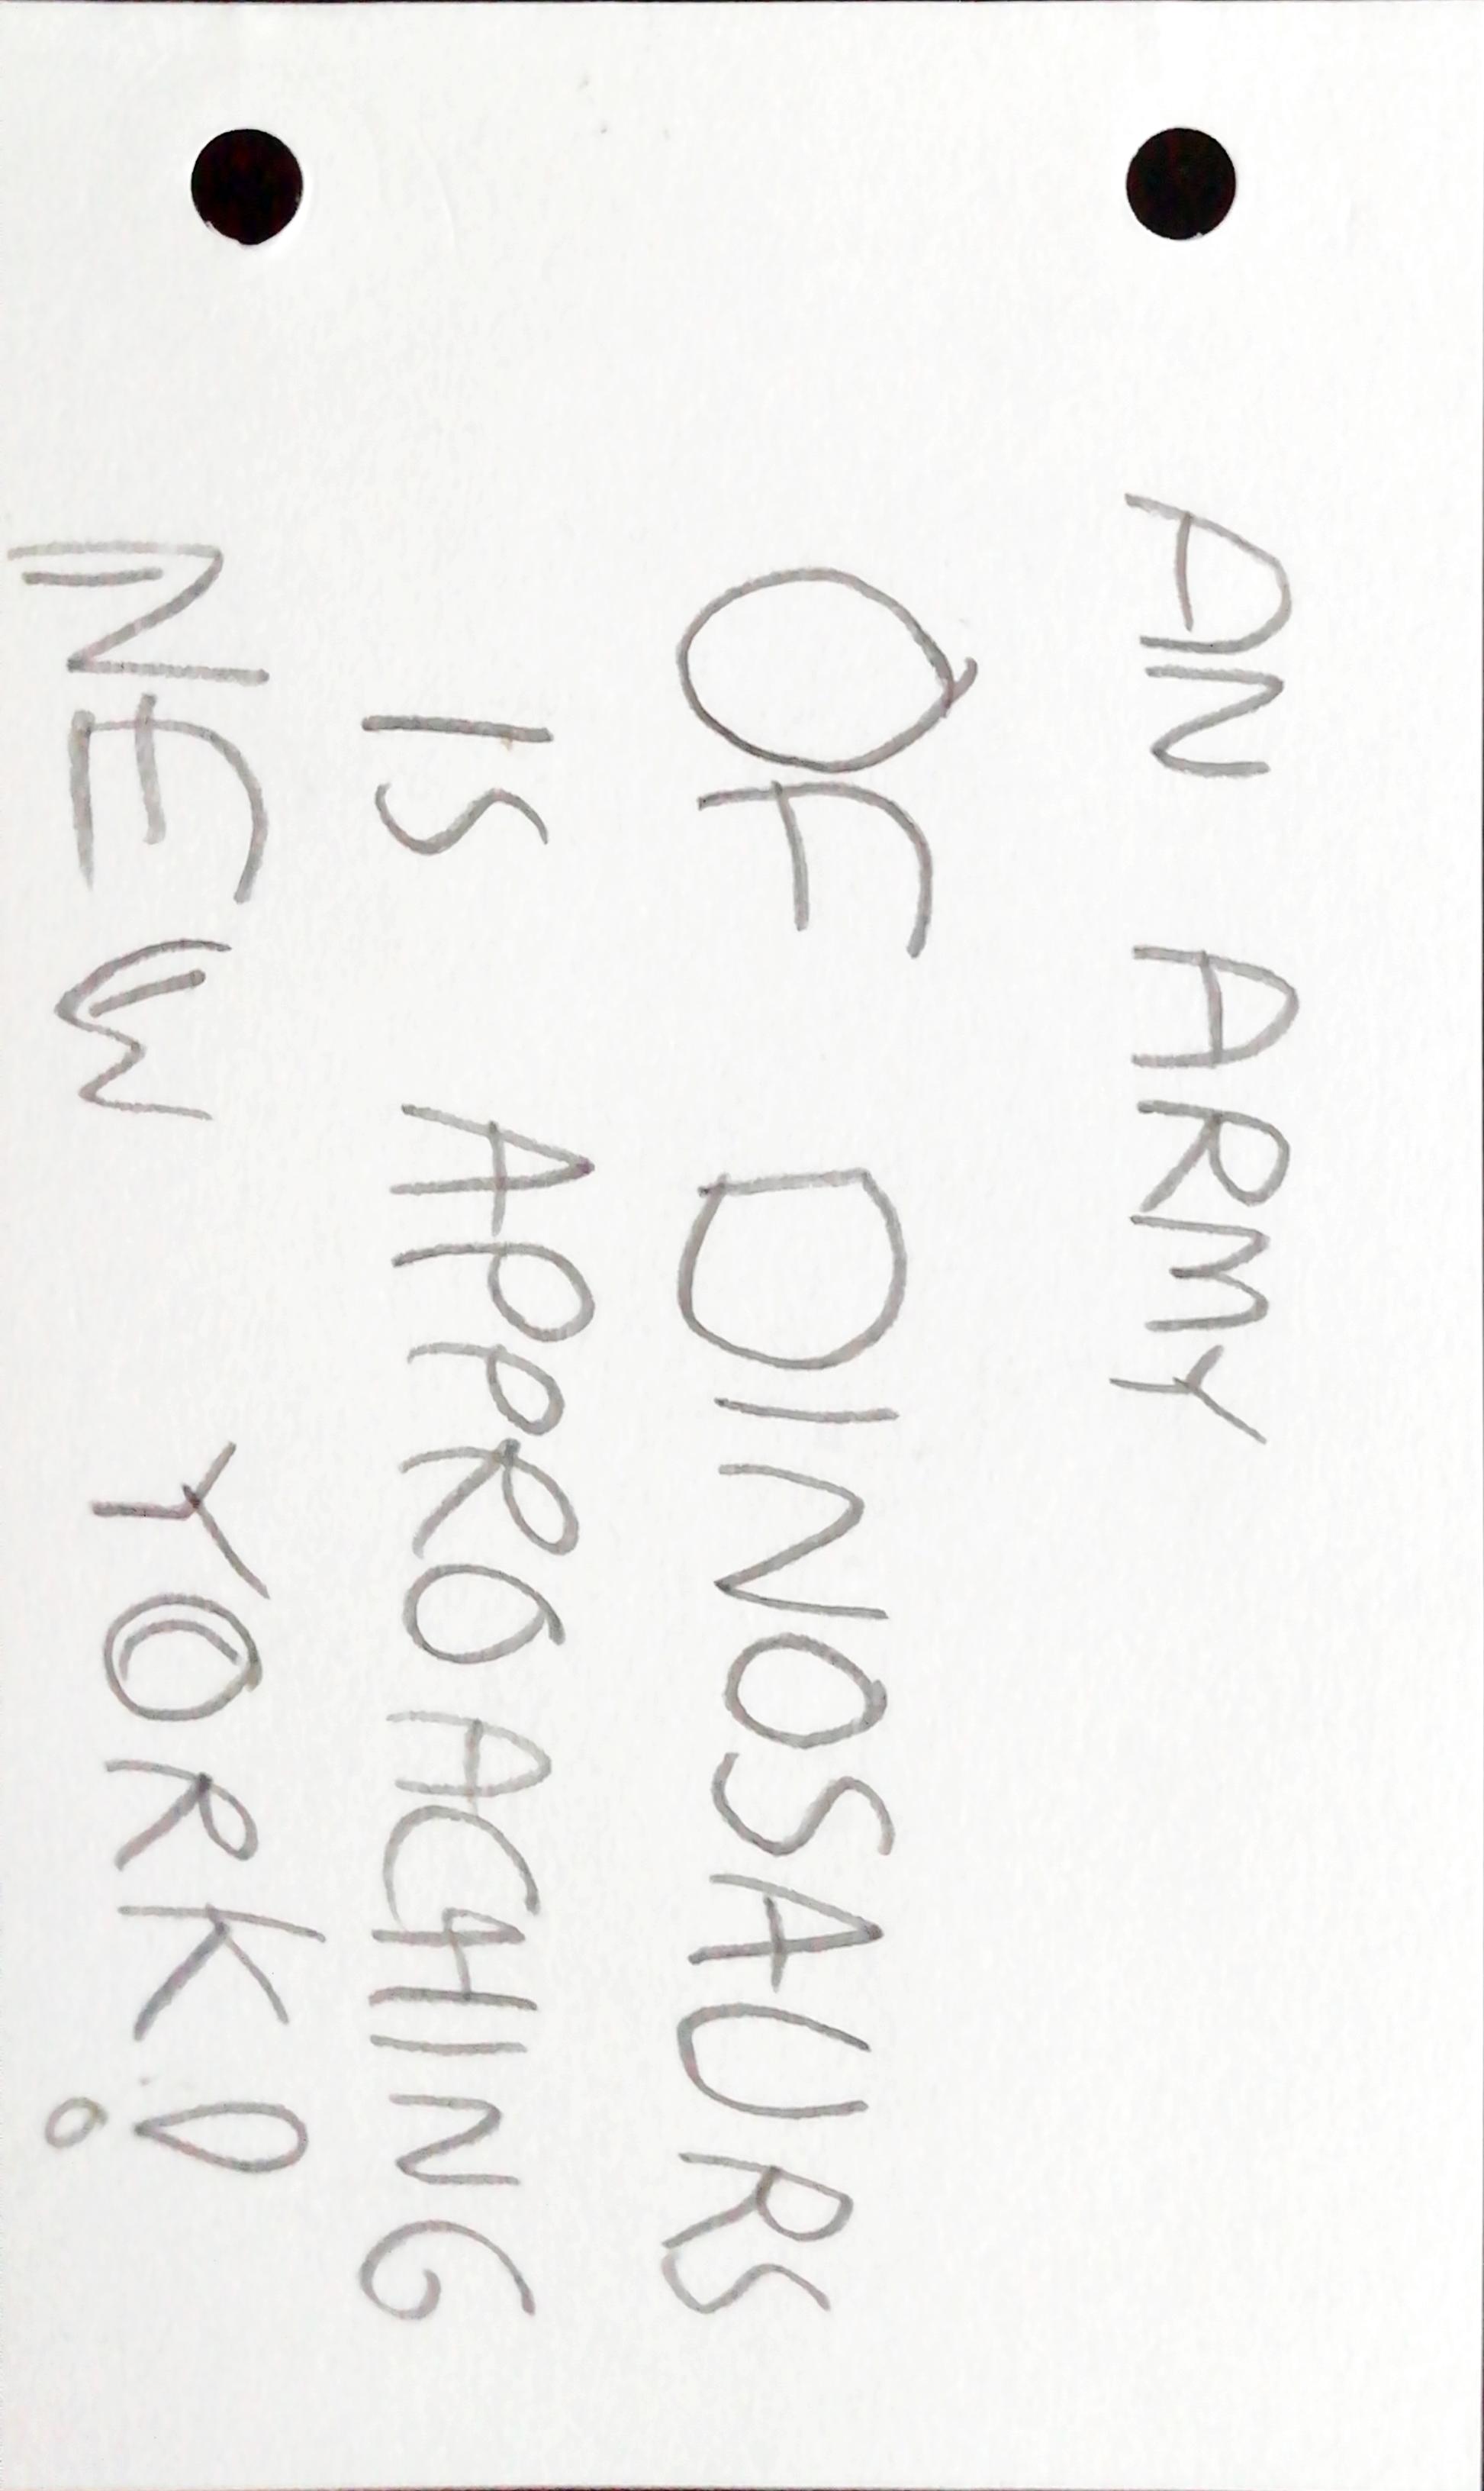 AN ARMY
OF DINOSAURS
IS APPROACHING
NEW YORK!